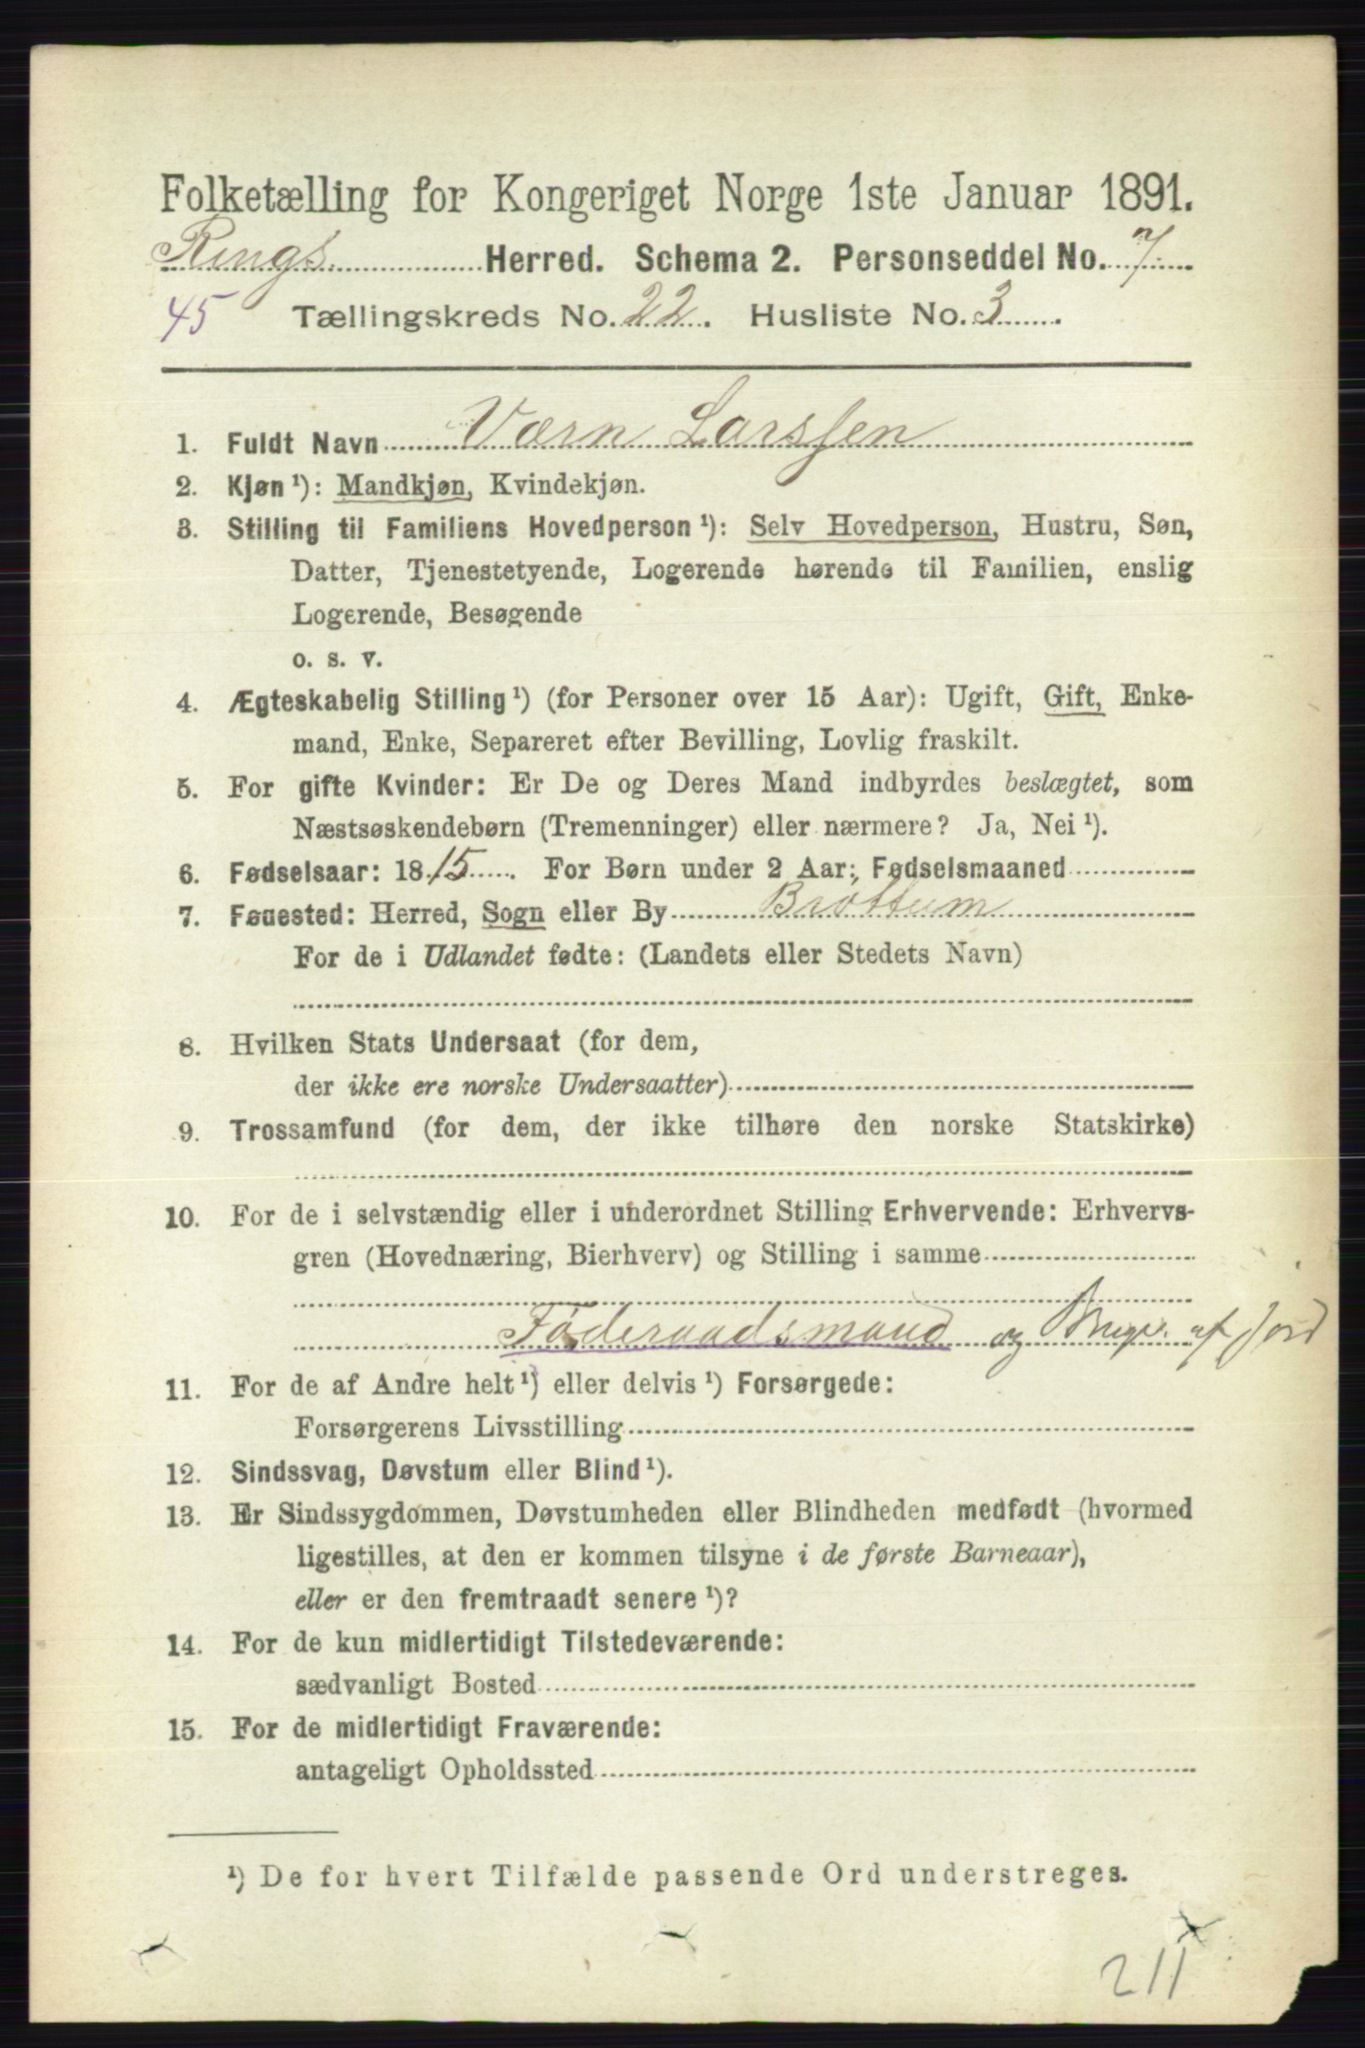 Folketælling for Kongeriget Norge 1ste Januar 1891.
Rings Herred. Schema 2. Personseddel No. 7
45 Tællingskreds No. 22. Husliste No. 3
1. Fuldt Navn Værn Larssen
2. Kjøn ¹): Mandkjøn, Kvindekjøn.
3. Stilling til Familiens Hovedperson ¹): Selv Hovedperson, Hustru, Søn,
Datter, Tjenestetyende, Logerende hørende til Familien, enslig
Logerende, Besøgende
o. s. v.
4. Ægteskabelig Stilling ¹) (for Personer over 15 Aar): Ugift, Gift, Enke-
mand, Enke, Separeret efter Bevilling, Lovlig fraskilt.
5. For gifte Kvinder: Er De og Deres Mand indbyrdes beslægtet, som
Næstsøskendebørn (Tremenninger) eller nærmere? Ja, Nei ¹).
6. Fødselsaar: 1815. For Børn under 2 Aar: Fødselsmaaned
7. Fødested: Herred, Sogn eller By Brøttum
For de i Udlandet fødte: (Landets eller Stedets Navn)
8. Hvilken Stats Undersaat (for dem,
der ikke ere norske Undersaatter)
9. Trossamfund (for dem, der ikke tilhøre den norske Statskirke)
10. For de i selvstændig eller i underordnet Stilling Erhvervende: Erhvervs-
gren (Hovednæring, Bierhverv) og Stilling i samme
Føderaadsmand og af Jord
11. For de af Andre helt ¹) eller delvis ¹) Forsørgede:
Forsørgerens Livsstilling
12. Sindssvag, Døvstum eller Blind ¹).
13. Er Sindssygdommen, Døvstumheden eller Blindheden medfødt (hvormed
ligestilles, at den er kommen tilsyne i de første Barneaar),
eller er den fremtraadt senere ¹)?
14. For de kun midlertidigt Tilstedeværende:
sædvanligt Bosted
15. For de midlertidigt Fraværende:
antageligt Opholdssted
¹) De for hvert Tilfælde passende Ord understreges.
211